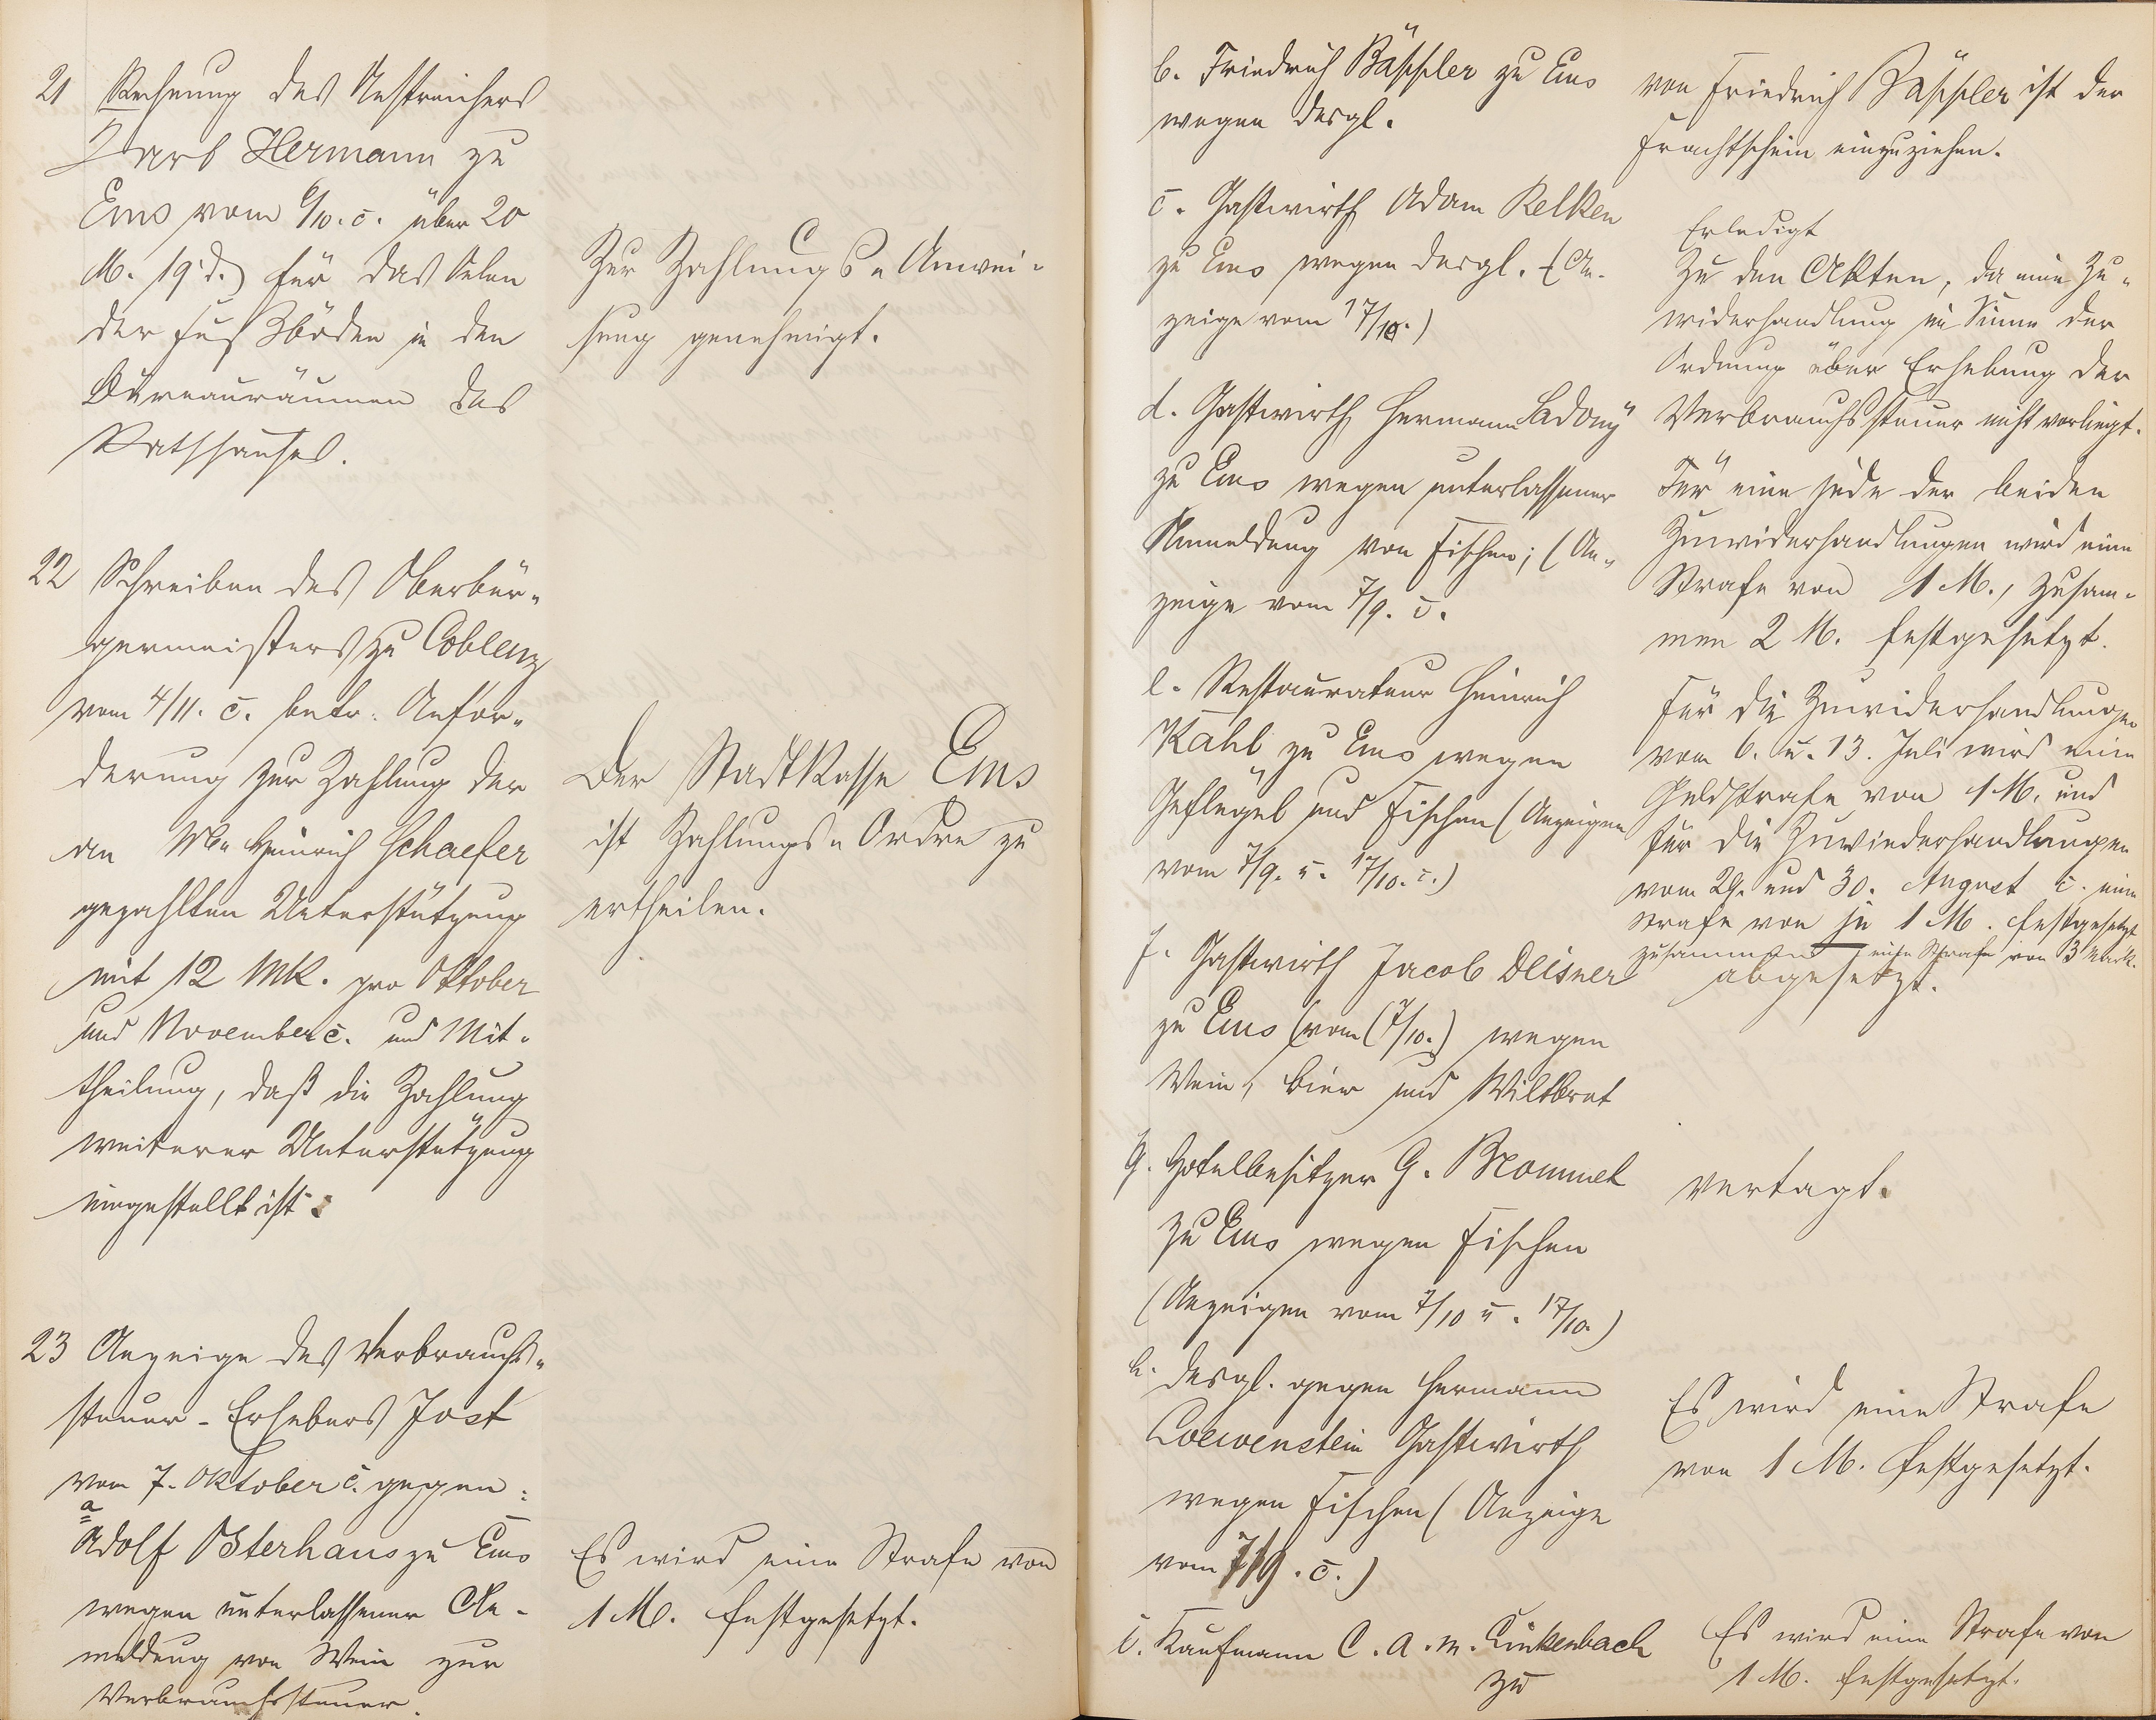 21 Rechnung des Anstreichers
Karl Hermann zu
Ems vom 6/10. c. über 20
M. 19 d. für das Oelen
der Fußböden in den
Büreauräumen des
Rathhauses.
Zur Zahlungs-Anwei-
sung genehmigt.
22 Schreiben des Oberbür-
germeisters zu Coblenz
vom 4/11. c. betr. Anfor-
derung zur Zahlung der
an Heinrich Schaefer
gezahlten Unterstützung
mit 12 Mk. pro Oktober
und November c. und Mit-
theilung, daß die Zahlung
weiterer Unterstützung
eingestellt ist.
Der Stadtkasse Ems
ist Zahlungs-Ordre zu
ertheilen.
23 Anzeige des Verbrauchs-
steuer-Erhebers Jost
vom 7. Oktober c. gegen:
a
Adolf Osterhaus zu Ems
wegen unterlassener An-
meldung von Wein zur
Verbrauchssteuer.
Es wird eine Strafe von
1 M. festgesetzt.
b. Friedrich Bäppler zu Ems
wegen desgl.
von Friedrich Bäppler ist der
Frachtschein einzuziehen.
c. Gastwirth Adam Kelken
zu Ems wegen desgl. (An-
zeige vom 17/10.)
Erledigt
Zu den Akten, da eine Zu-
widerhandlung im Sinne der
Ordnung über Erhebung der
Verbrauchssteuer nicht vorliegt.
d. Gastwirth Hermann Ladony
zu Ems wegen unterlassener
Anmeldung von Fischen; (An-
zeige vom 7/9. c.
Für eine jede der beiden
Zuwiderhandlungen wird eine
Strafe von 1 M., zusam-
men 2 M. festgesetzt.
e. Restaurateur Heinrich
Kahl zu Ems wegen
Geflügel und Fischen (Anzeigen
vom 7/9. u. 17/10. c.)
Für die Zuwiderhandlungen
vom 6. u. 13. Juli wird eine
Geldstrafe von 1 M. und
für die Zuwiederhandlungen
vom 29. und 30. August c. eine
Strafe von je 1 M. festgesetzt
zusammen eine Strafe von 3 Mark.
f. Gastwirth Jacob Deisner
zu Ems (vom (7/10.) wegen
Wein, Bier und Wildbret
abgesetzt.
g. Hotelbesitzer G. Brommel
zu Ems wegen Fischen
(Anzeigen vom 7/10 u. 17/10.)
Vertagt.
h. desgl. gegen Hermann
Loewenstein Gastwirth
wegen Fischen (Anzeige
vom 7/9. c.)
Es wird eine Strafe
von 1 M. festgesetzt.
i. Kaufmann C. A. W. Linkenbach
zu
Es wird eine Strafe von
1 M. festgesetzt.